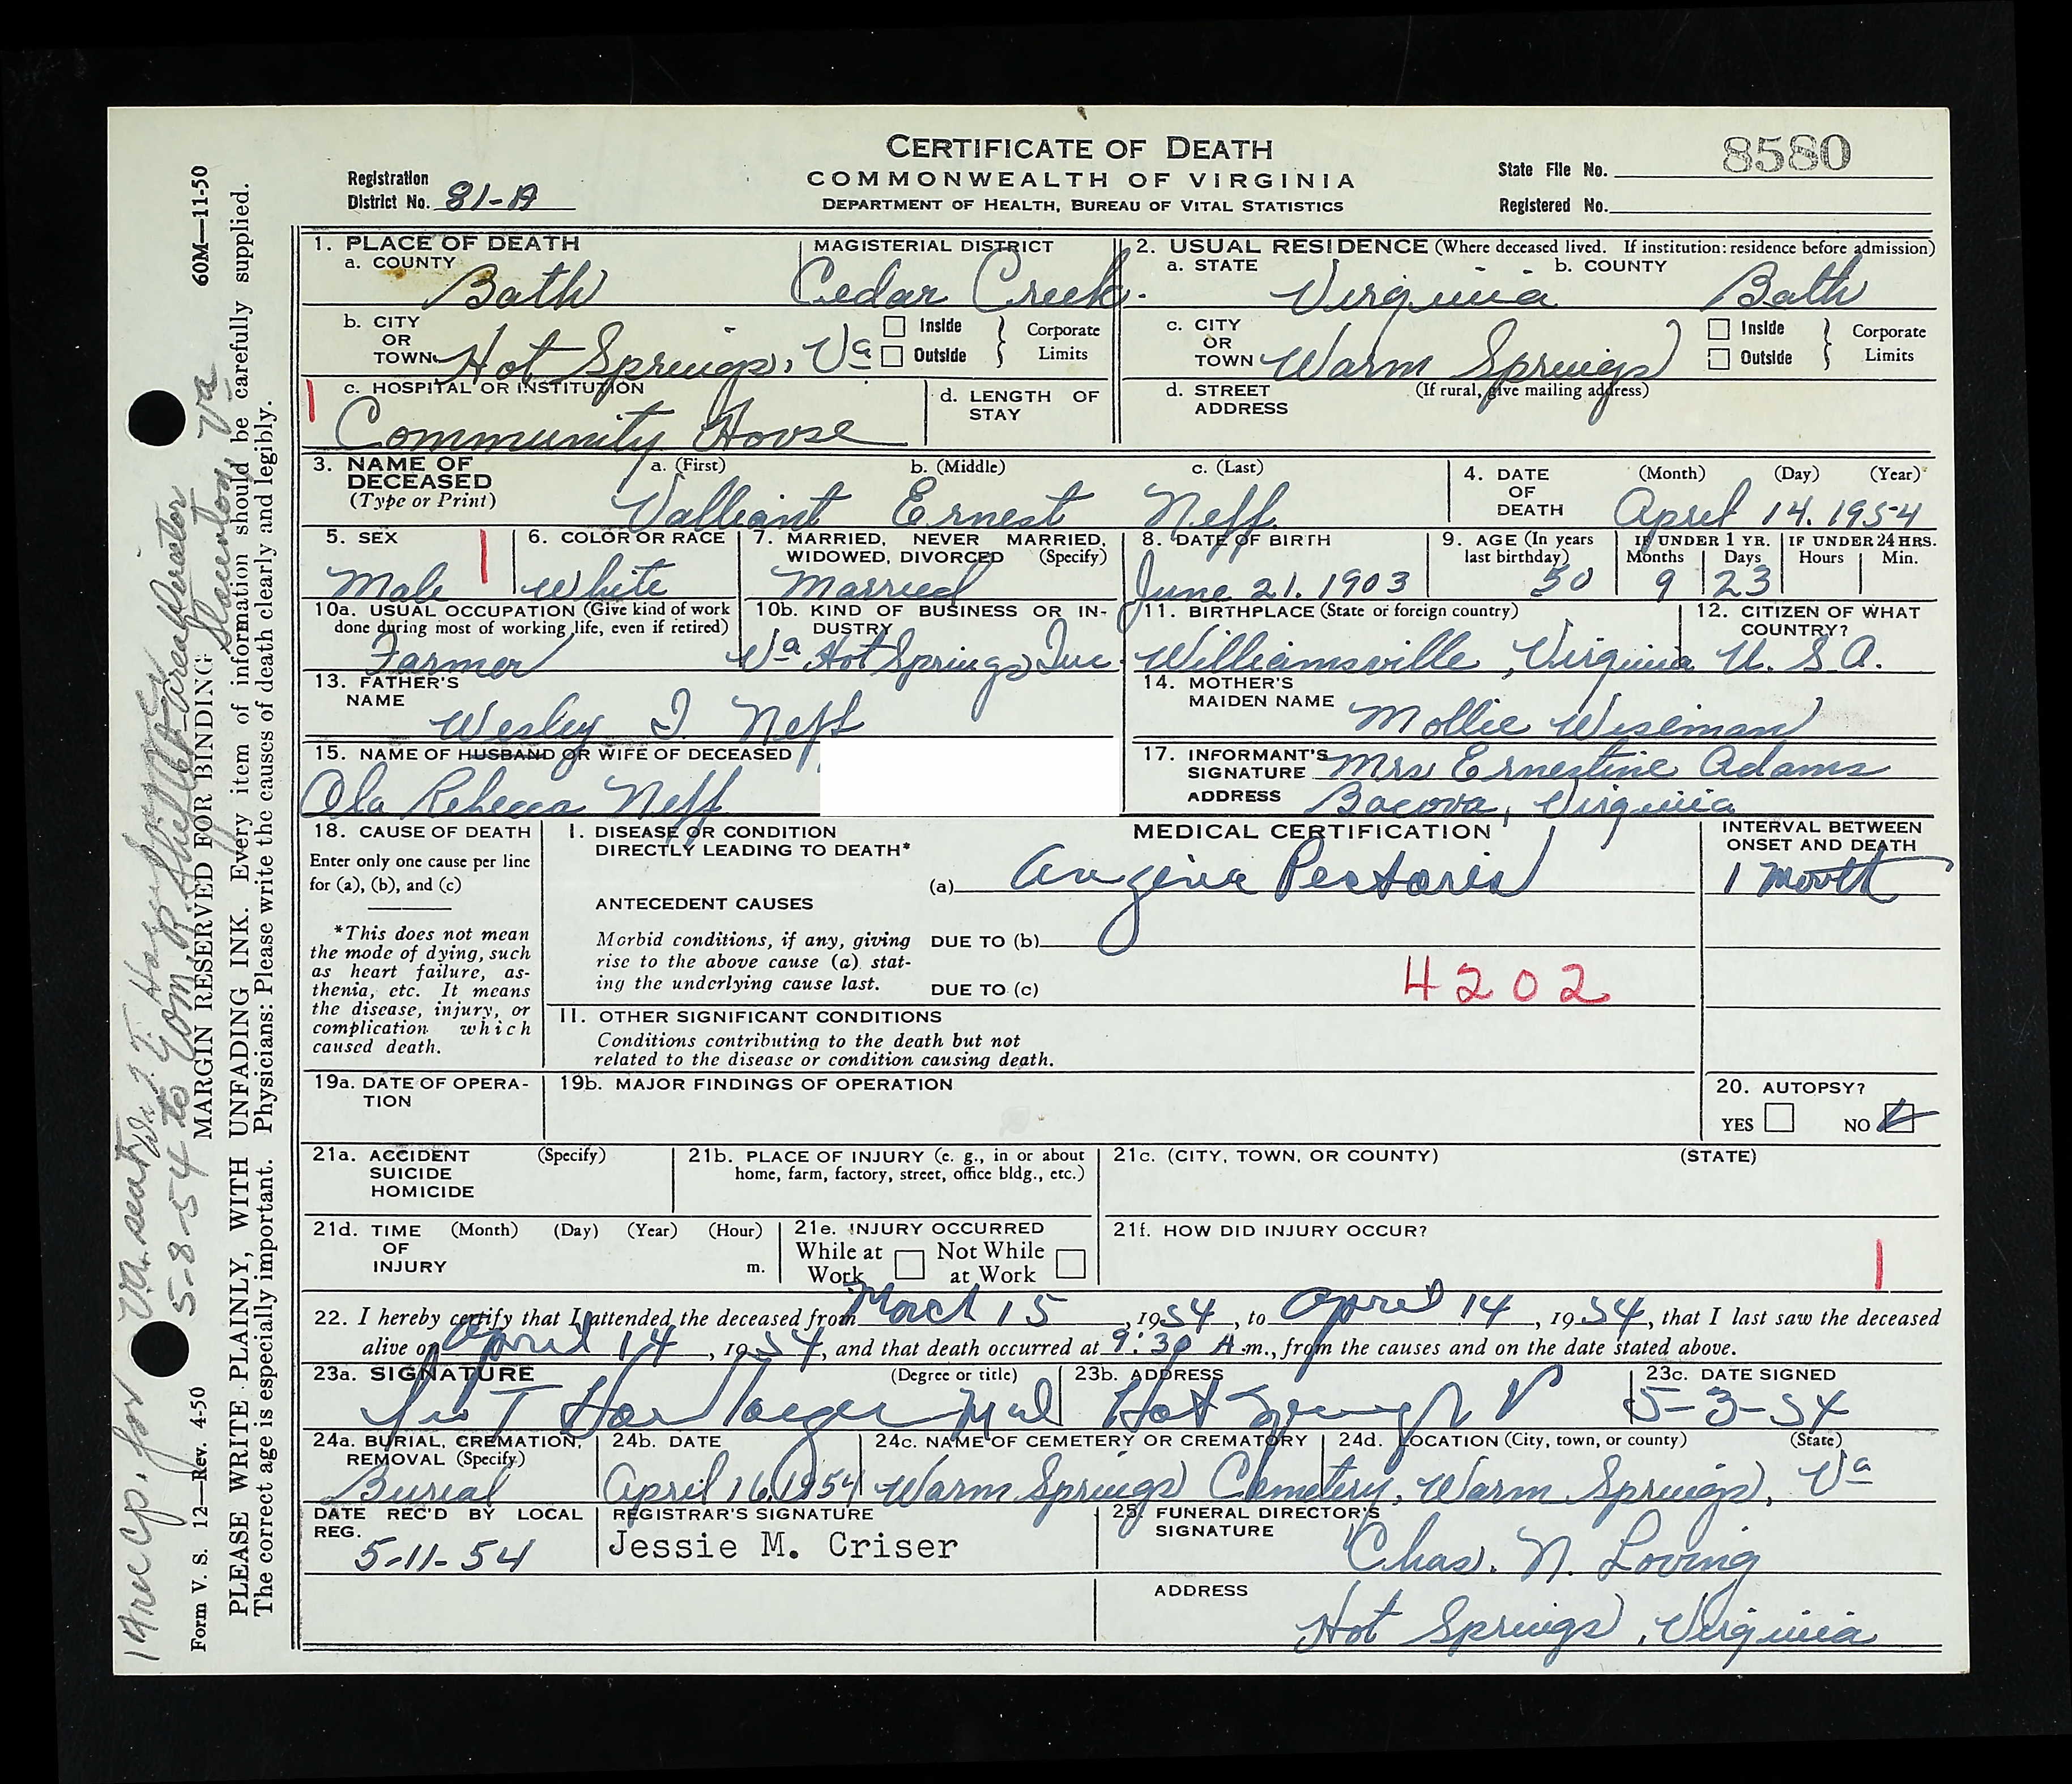 CERTIFICATE OF DEATH
COMMONWEALTH OF VIRGINIA
DEPARTMENT OF HEALTH, BUREAU OF VITAL STATISTICS
Registration District No. 81-A
State File No. 8580
Registered No.
1. PLACE OF DEATH
a. COUNTY Bath
MAGISTERIAL DISTRICT Cedar Creek.
2. USUAL RESIDENCE (Where deceased lived. If institution: residence before admission)
a. STATE Virginia b. COUNTY Bath
b. CITY OR TOWN Hot Springs, Va Inside Outside } Corporate Limits
c. CITY OR TOWN Warm Springs Inside Outside } Corporate Limits
c. HOSPITAL OR INSTITUTION Community House
d. LENGTH OF STAY
d. STREET ADDRESS (If rural, give mailing address)
3. NAME OF DECEASED (Type or Print)
a. (First) b. (Middle) c. (Last)
Valliant Ernest Neff
4. DATE OF DEATH (Month) (Day) (Year)
April 14. 1954
5. SEX Male
6. COLOR OR RACE White
7. MARRIED, NEVER MARRIED, WIDOWED, DIVORCED (Specify) Married
8. DATE OF BIRTH June 21. 1903
9. AGE (In years last birthday) 50
IF UNDER 1 YR. Months 9 Days 23
IF UNDER 24 HRS. Hours Min.
10a. USUAL OCCUPATION (Give kind of work done during most of working life, even if retired) Farmer
10b. KIND OF BUSINESS OR INDUSTRY Va Hot Springs Inc.
11. BIRTHPLACE (State or foreign country) Williamsville, Virginia
12. CITIZEN OF WHAT COUNTRY? U. S. A.
13. FATHER'S NAME Wesley I. Neff
14. MOTHER'S MAIDEN NAME Mollie Wiseman
15. NAME OF HUSBAND OR WIFE OF DECEASED
Ola Rebecca Neff
17. INFORMANT'S SIGNATURE Mrs Ernestine Adams
ADDRESS Bacova, Virginia
18. CAUSE OF DEATH
Enter only one cause per line for (a), (b), and (c)
*This does not mean the mode of dying, such as heart failure, asthenia, etc. It means the disease, injury, or complication which caused death.
MEDICAL CERTIFICATION
INTERVAL BETWEEN ONSET AND DEATH
I. DISEASE OR CONDITION DIRECTLY LEADING TO DEATH*
(a) Angina Pectoris 1 month
ANTECEDENT CAUSES
Morbid conditions, if any, giving rise to the above cause (a) stating the underlying cause last.
DUE TO (b)
DUE TO (c)
4202
II. OTHER SIGNIFICANT CONDITIONS
Conditions contributing to the death but not related to the disease or condition causing death.
19a. DATE OF OPERATION
19b. MAJOR FINDINGS OF OPERATION
20. AUTOPSY?
YES NO
21a. ACCIDENT SUICIDE HOMICIDE (Specify)
21b. PLACE OF INJURY (e. g., in or about home, farm, factory, street, office bldg., etc.)
21c. (CITY, TOWN, OR COUNTY) (STATE)
21d. TIME OF INJURY (Month) (Day) (Year) (Hour) m.
21e. INJURY OCCURRED
While at Work Not While at Work
21f. HOW DID INJURY OCCUR?
22. I hereby certify that I attended the deceased from March 15, 1954, to April 14, 1954, that I last saw the deceased
alive on April 14, 1954, and that death occurred at 9:30 A m., from the causes and on the date stated above.
23a. SIGNATURE (Degree or title)
Md
23b. ADDRESS Hot Springs V
23c. DATE SIGNED 5-3-54
24a. BURIAL, CREMATION, REMOVAL (Specify) Burial
24b. DATE April 16, 1954
24c. NAME OF CEMETERY OR CREMATORY Warm Springs Cemetery,
24d. LOCATION (City, town, or county) (State) Warm Springs, Va
DATE REC'D BY LOCAL REG. 5-11-54
REGISTRAR'S SIGNATURE Jessie M. Criser
25. FUNERAL DIRECTOR'S SIGNATURE Chas. N. Loving
ADDRESS Hot Springs, Virginia
Form V. S. 12—Rev. 4-50 MARGIN RESERVED FOR BINDING 60M—11-50
PLEASE WRITE PLAINLY, WITH UNFADING INK. Every item of information should be carefully supplied.
The correct age is especially important. Physicians: Please write the causes of death clearly and legibly.
5-8-54 to Com.
Staunton, Va